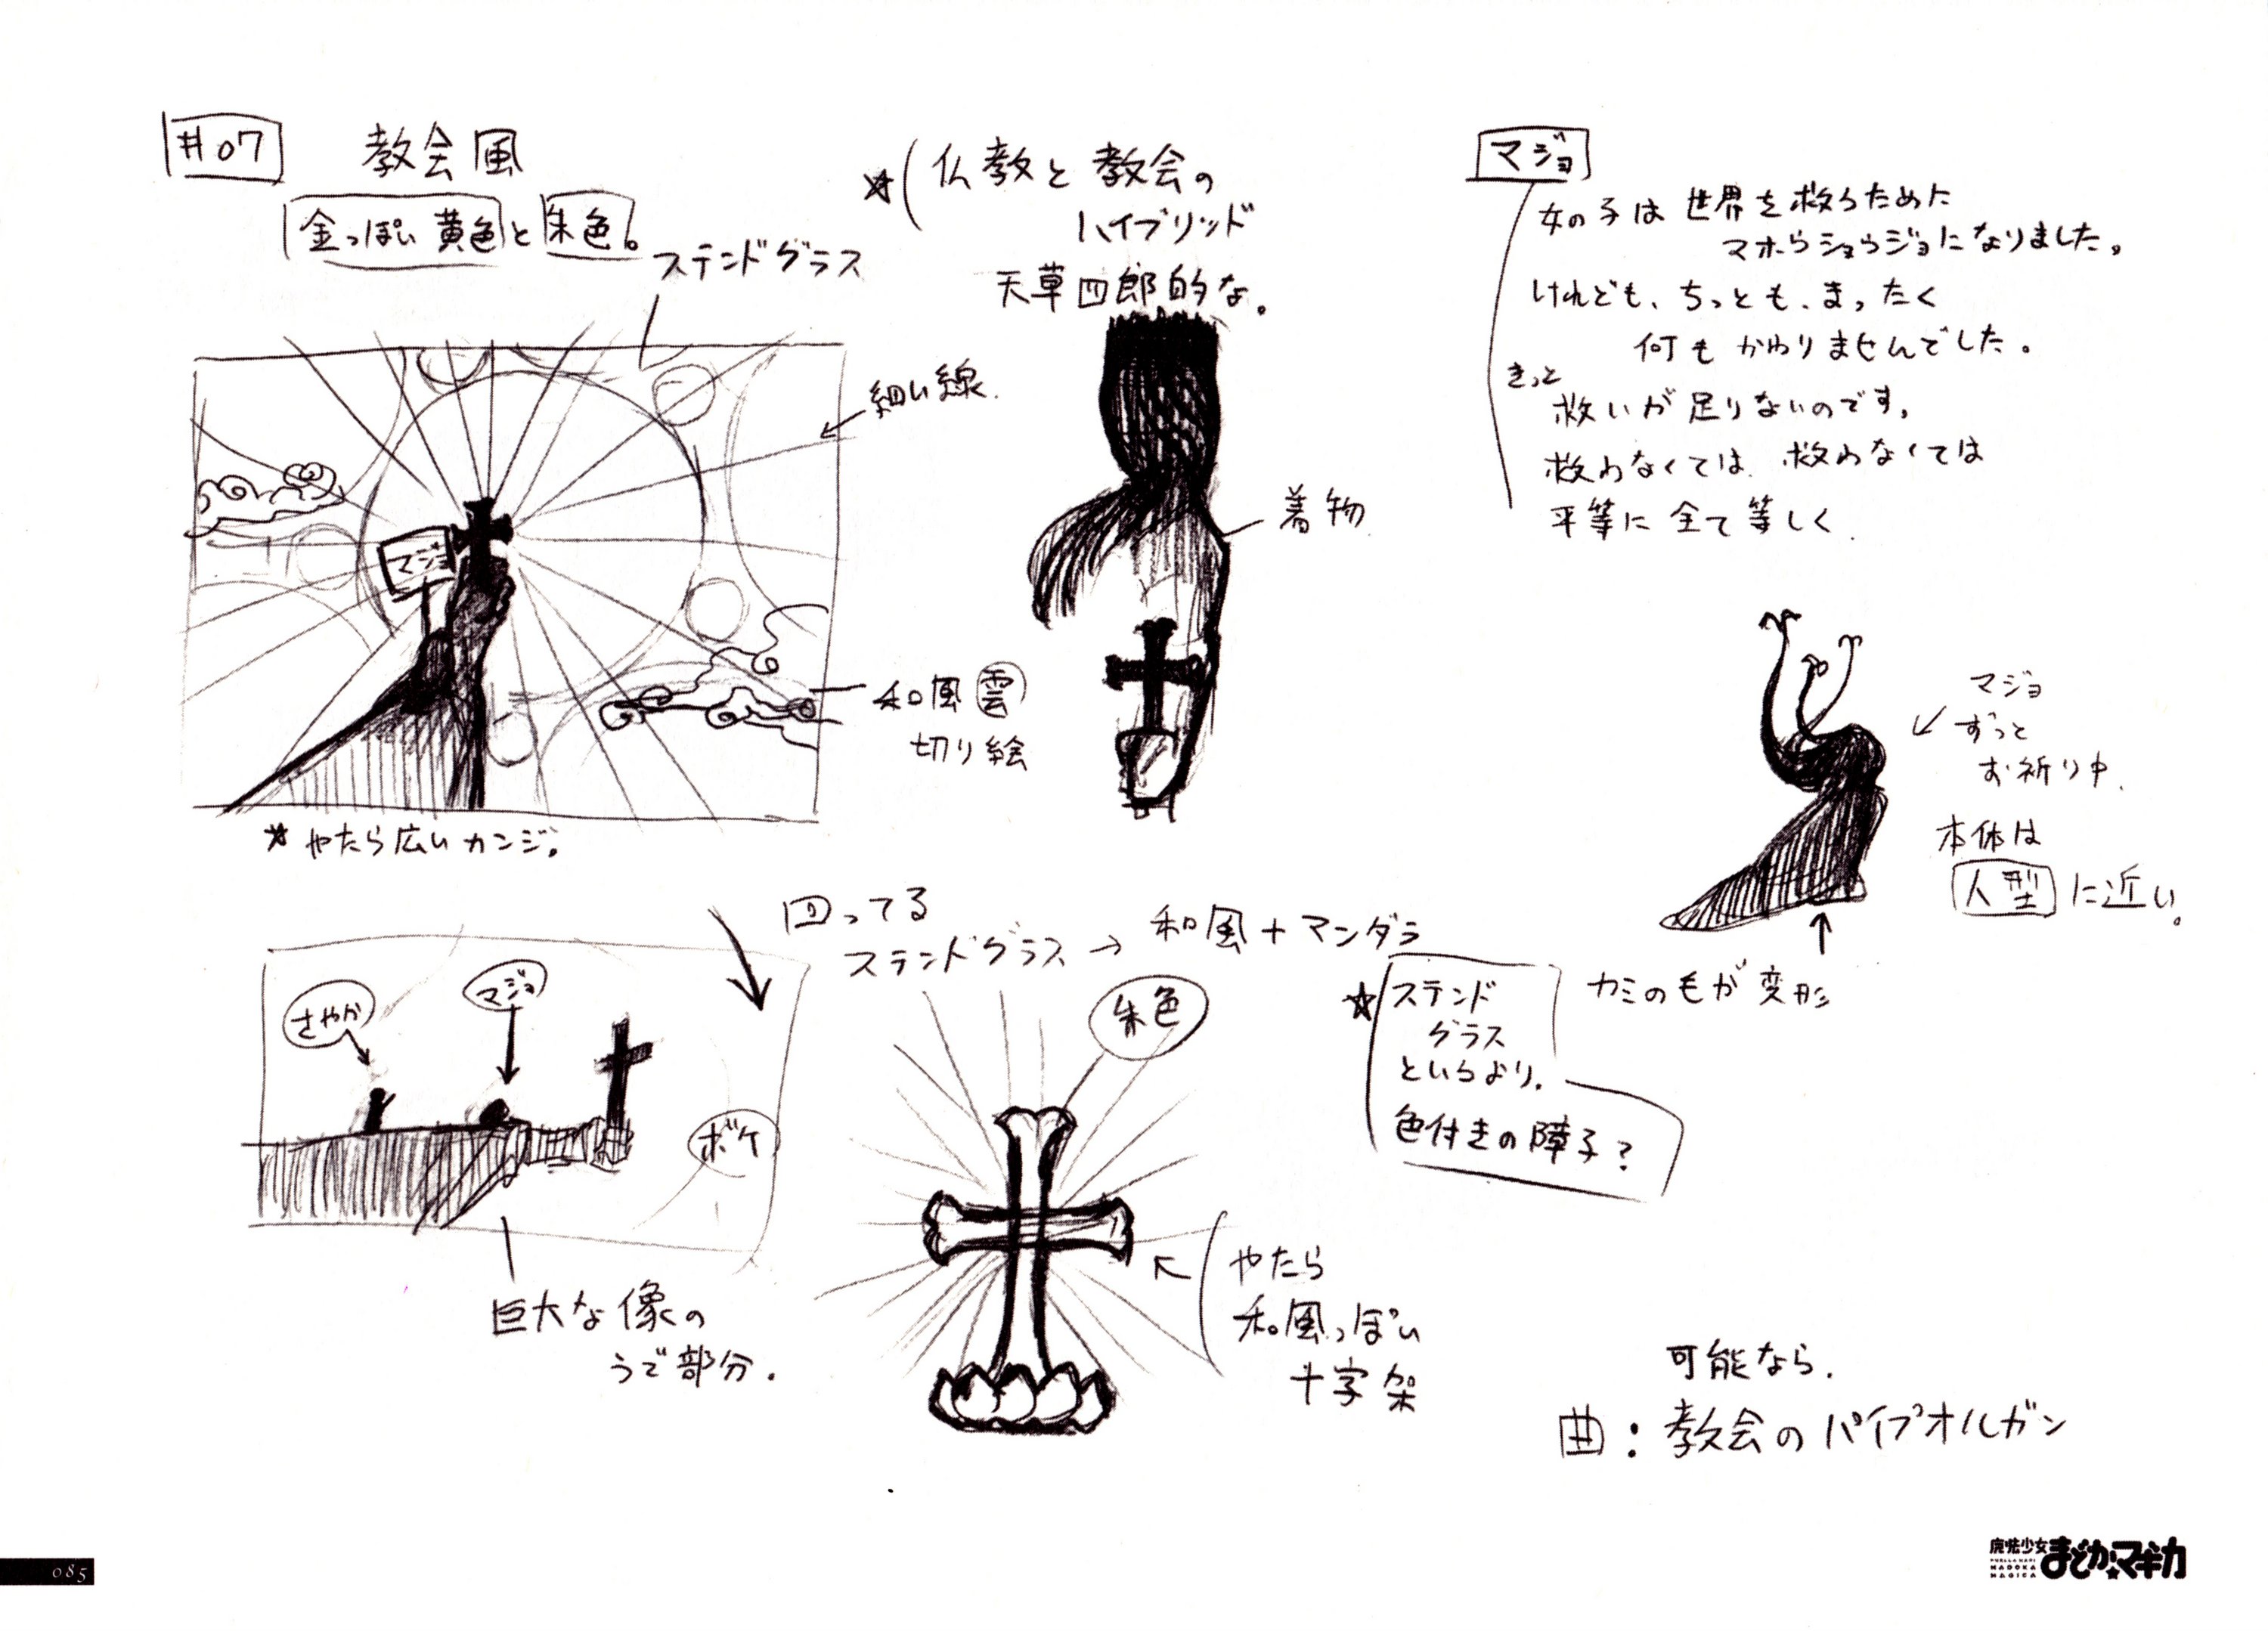 #07
教会風
金っぽい黄色と朱色。
ステンドグラス
細い線.
マジョ
和風雲
切り絵
☆ やたら広いカンジ。
☆ 仏教と教会の
ハイブリッド
天草四郎的な。
着物
マジョ
女の子は世界を救うために
マホウショウジョになりました。
けれども、ちっとも、まったく
何もかわりませんでした。
きっと
救いが足りないのです。
救わなくては 救わなくては
平等に全て等しく
マジョ
ずっと
お祈り中.
本体は
人型に近い。
カミの毛が変形
回ってる
ステンドグラス → 和風+マンダラ
☆ ステンド
グラス
というより.
色付きの障子?
さやか
マジョ
ボケ
巨大な像の
うで部分.
朱色
やたら
和風っぽい
十字架
可能なら.
曲:教会のパイプオルガン
085
魔法少女
まどか☆マギカ
PUELLA MAGI
MADOKA
MAGICA